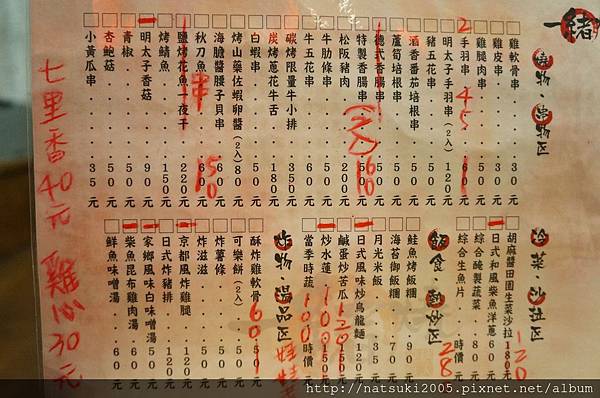 一緒
燒物・串物区
雞軟骨串 30元
雞皮串 30元
雞腿肉串 50元
手羽串 45 元
明太子手羽串(2入) 120元
豬五花串 50元
酒香番茄培根串 50元
蘆筍培根串 50元
德式香腸串 50元
特製香腸串 50元
松阪豬肉 200元
牛肋條串 50元
牛五花串 60元
碳烤限量牛小排 350元
炭烤蔥花牛舌 180元
白蝦串 50元
海膽醬腰子貝串 50元
烤山藥佐蝦卵醬(2入) 80元
秋刀魚 60元
鹽烤花魚一夜干 220元
烤鯖魚 150元
明太子香菇 90元
青椒 50元
杏鮑菇 50元
小黃瓜串 35元
冷菜・沙拉区
胡麻醬田園生菜沙拉 180元 120
日式和風柴魚洋蔥 60元
綜合醃製蔬菜 80元
綜合生魚片 時價
飯食・麵炒区
鮭魚烤飯糰 60元
海苔御飯糰 90元
月光米飯 35元
日式風味炒烏龍麵 120元
鹹蛋炒苦瓜 150元 120
炒水蓮 150元 100
當季時蔬 時價 100
炸物・湯品区
酥炸雞軟骨 50元 60
可樂餅(2入) 50元
炸薯條 50元
炸滋滋 50元
京都風炸雞腿 120元
日式炸豬排 120元
家鄉風味白味噌湯 50元
柴魚昆布雞肉湯 60元
鮮魚味噌湯 60元
七里香40元
雞心30元
http://natsuki2005.pixnet.net/album